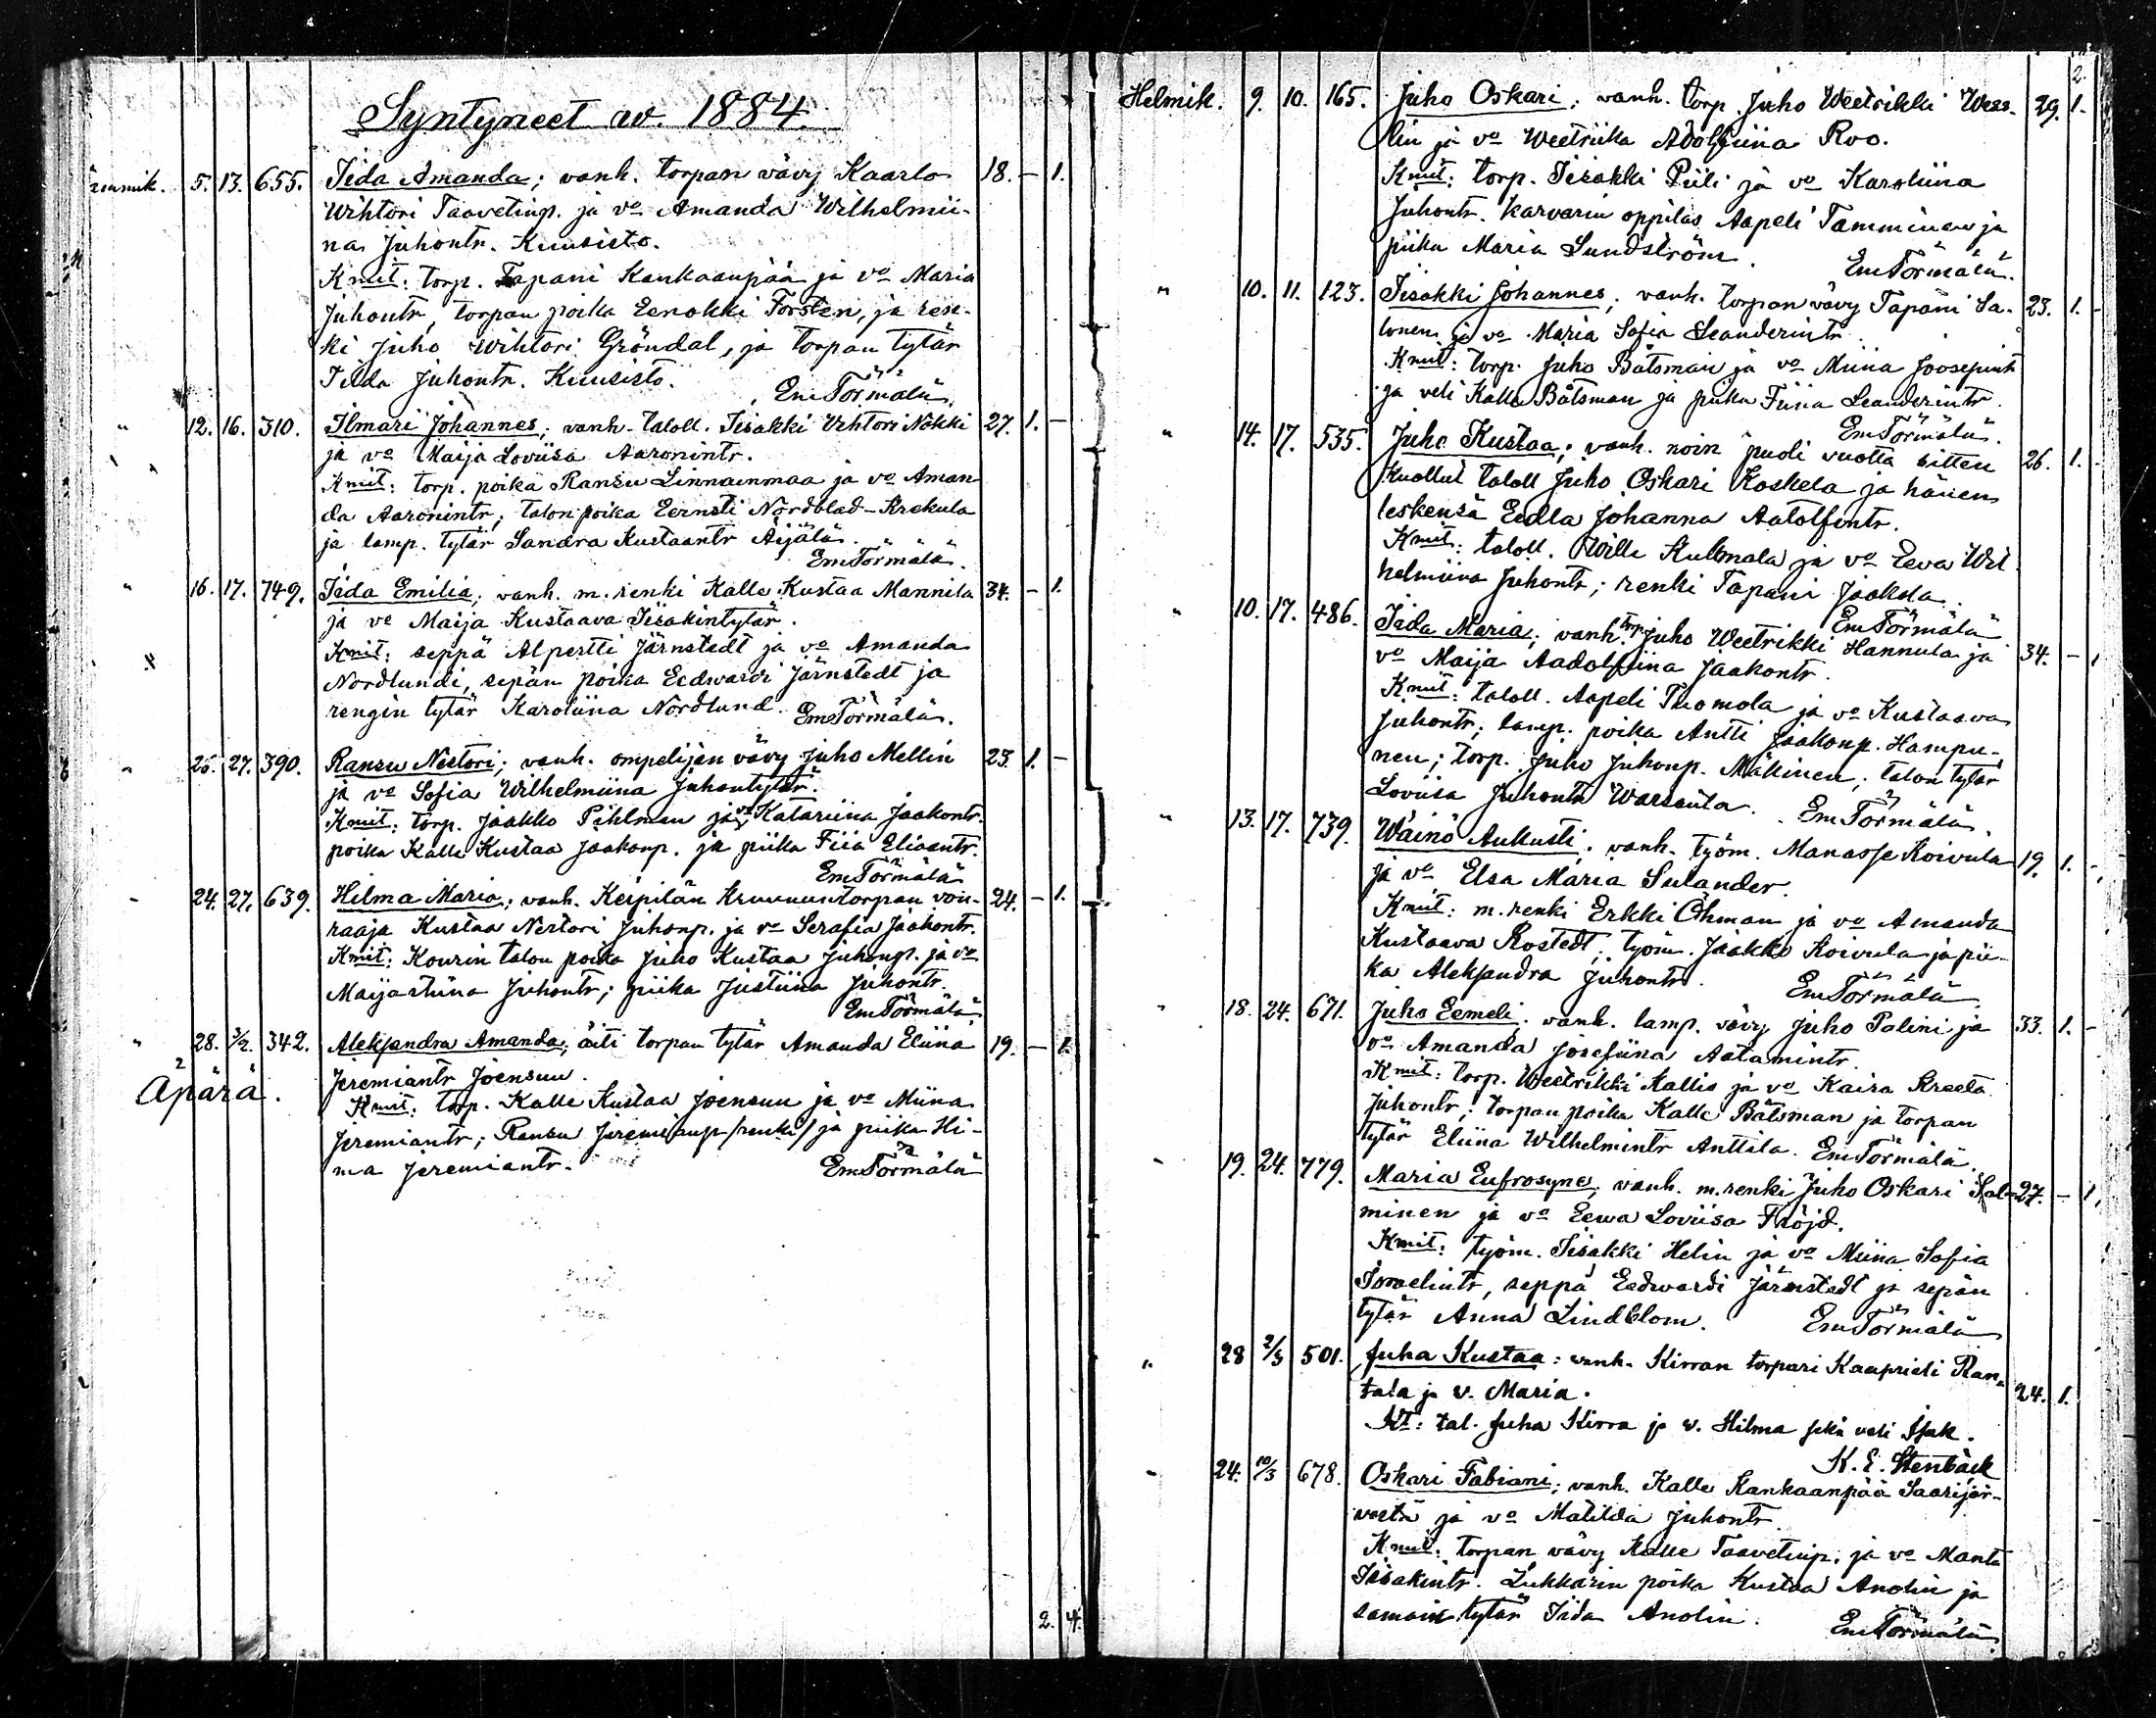 Syntyneet w. 1884.
5. 13. 655. Iida Amanda; vanh. torpan vävy Kaarlo 18. – 1.
Wihtori Taavetinp. ja vo Amanda Wilhelmii-
na Juhontr. Kuusisto.
Kmit: torp. Tapani Kankaanpää ja vo Maria
Juhontr, torpan poika Eenokki Forsten, ja ren-
ki Juho Wihtori Gröndal, ja torpan tytär
Iida Juhontr. Kuusisto. Em Törmälä.
" 12. 16. 310. Ilmari Johannes; vanh. taloll. Iisakki Wihtori Nokki 27. 1. –
ja vo Maija Loviisa Aaronintr.
Kmit: torp. poika Ransu Linnainmaa ja vo Aman-
da Aaronintr; talon poika Eernsti Nordblad-Krekula
ja lamp. tytär Sandra Kustaantr Äijälä.
Em Törmälä.
" 16. 17. 749. Iida Emilia; vanh. m. renki Kalle Kustaa Mannila 34. – 1.
ja vo Maija Kustaava Iisakintytär.
Kmit: seppä Alpertti Järnstedt ja vo Amanda
Nordlundi, sepän poika Eedwardi Järnstedt ja
rengin tytär Karoliina Nordlund. Em Törmälä.
" 25. 27. 390. Ransu Nestori; vanh. ompelijan vävy Juho Mellin 23. 1. –
ja vo Sofia Wilhelmiina Juhontytär.
Kmit: torp. Jaakko Pihlman ja vo Katariina Jaakontr.
poika Kalle Kustaa Jaakonp. ja piika Fiia Eliaantr.
Em Törmälä
" 24. 27. 639. Hilma Maria; vanh. Keipilän Kruunun torpan vou- 24. – 1.
raaja Kustaa Nestori Juhonp. ja vo Serafia Jaakontr.
Kmit: Kourin talon poika Juho Kustaa Juhonp. ja vo
Maijastiina Juhontr; piika Justiina Juhontr.
Em Törmälä
" 28. 3/2. 342. Aleksandra Amanda; äiti torpan tytär Amanda Eliina 19. – 1.
Äpärä. Jeremiantr Joensuu.
Kmit: torp. Kalle Kustaa Joensuu ja vo Miina
Jeremiantr; Ransu Jeremianp /renki/ ja piika Hi-
ma Jeremiantr. Em Törmälä
2. 4.
2.
Helmik. 9. 10. 165. Juho Oskari; vanh. torp. Juho Weetrikki Wess- 29. 1.
lin ja vo Weetriika Adolfiina Roo.
Kmit: torp. Iisakki Piili ja vo Karoliina
Juhontr. karvarin oppilas Aapeli Tamminen ja
piika Maria Lundström. Em Törmälä.
" 10. 11. 123. Iisakki Johannes; vanh. torpan vävy Tapani Sa- 23. 1. –
lonen ja vo Maria Sofia Leanderintr.
Kmit: torp. Juho Båtsman ja vo Miina Joosepintr
ja veli Kalle Båtsman ja piika Fiina Leanderintr.
Em Törmälä.
" 14. 17. 535. Juho Kustaa; vanh. noin puoli vuotta sitten 26. 1.
kuollut taloll Juho Oskari Koskela ja hänen
leskensä Eedla Johanna Aatolfintr.
Kmit: taloll. Wille Kulmala ja vo Eewa Wil-
helmiina Juhontr; renki Tapani Jaakola.
Em Törmälä
" 10. 17. 486. Iida Maria; vanh. torp. Juho Weetrikki Hannula ja 34. – 1
vo Maija Aadolfiina Jaakontr.
Kmit: taloll. Aapeli Tuomola ja vo Kustaava
Juhontr; lamp. poika Antti Jaakonp. Hampu-
nen; torp. Juho Juhonp. Mäkinen; talon tytär
Loviisa Juhontr Warsanta. Em Törmälä.
" 13. 17. 739. Wäinö Aukusti; vanh. työm. Manasse Koivula 19. 1. –
ja vo Elsa Maria Sulander.
Kmit: m. renki Erkki Öhman ja vo Amanda
Kustaava Rostedt; työm. Jaakko Koivula ja pii-
ka Aleksandra Juhontr. Em Törmälä.
" 18. 24. 671. Juho Eemeli; vanh. lamp. vävy Juho Palini ja 33. 1. –
vo Amanda Josefiina Aatamintr.
Kmit: torp. Weetrikki Kallio ja vo Kaisa Kreeta
Juhontr; torpan poika Kalle Båtsman ja torpan
tytär Eliina Wilhelmintr Anttila. Em Törmälä.
" 19. 24. 779. Maria Eufrosyne; vanh. m. renki Juho Oskari Sal- 27. – 1.
minen ja vo Eewa Loviisa Fröjd.
Kmit: työm. Iisakki Helin ja vo Miina Sofia
Israelintr, seppä Eedwardi Järnstedt ja sepän
tytär Anna Lindblom. Em Törmälä
" 28 2/3 501. Juha Kustaa: vanh. Kirran torpari Kaaprieli Ran- 24. 1.
tala ja v. Maria.
Kt: tal. Juha Kirra ja v. Hilma sekä veli Isak.
K. E. Stenbäck
" 24. 10/3 678. Oskari Fabiani; vanh. Kalle Kankaanpää Saarijär-
vestä ja vo Matilda Juhontr.
Kmit: torpan vävy Kalle Taavetinp. ja vo Manta
Iisakintr. Lukkarin poika Kustaa Anolin ja
saman tytär Iida Anolin. Em Törmälä.